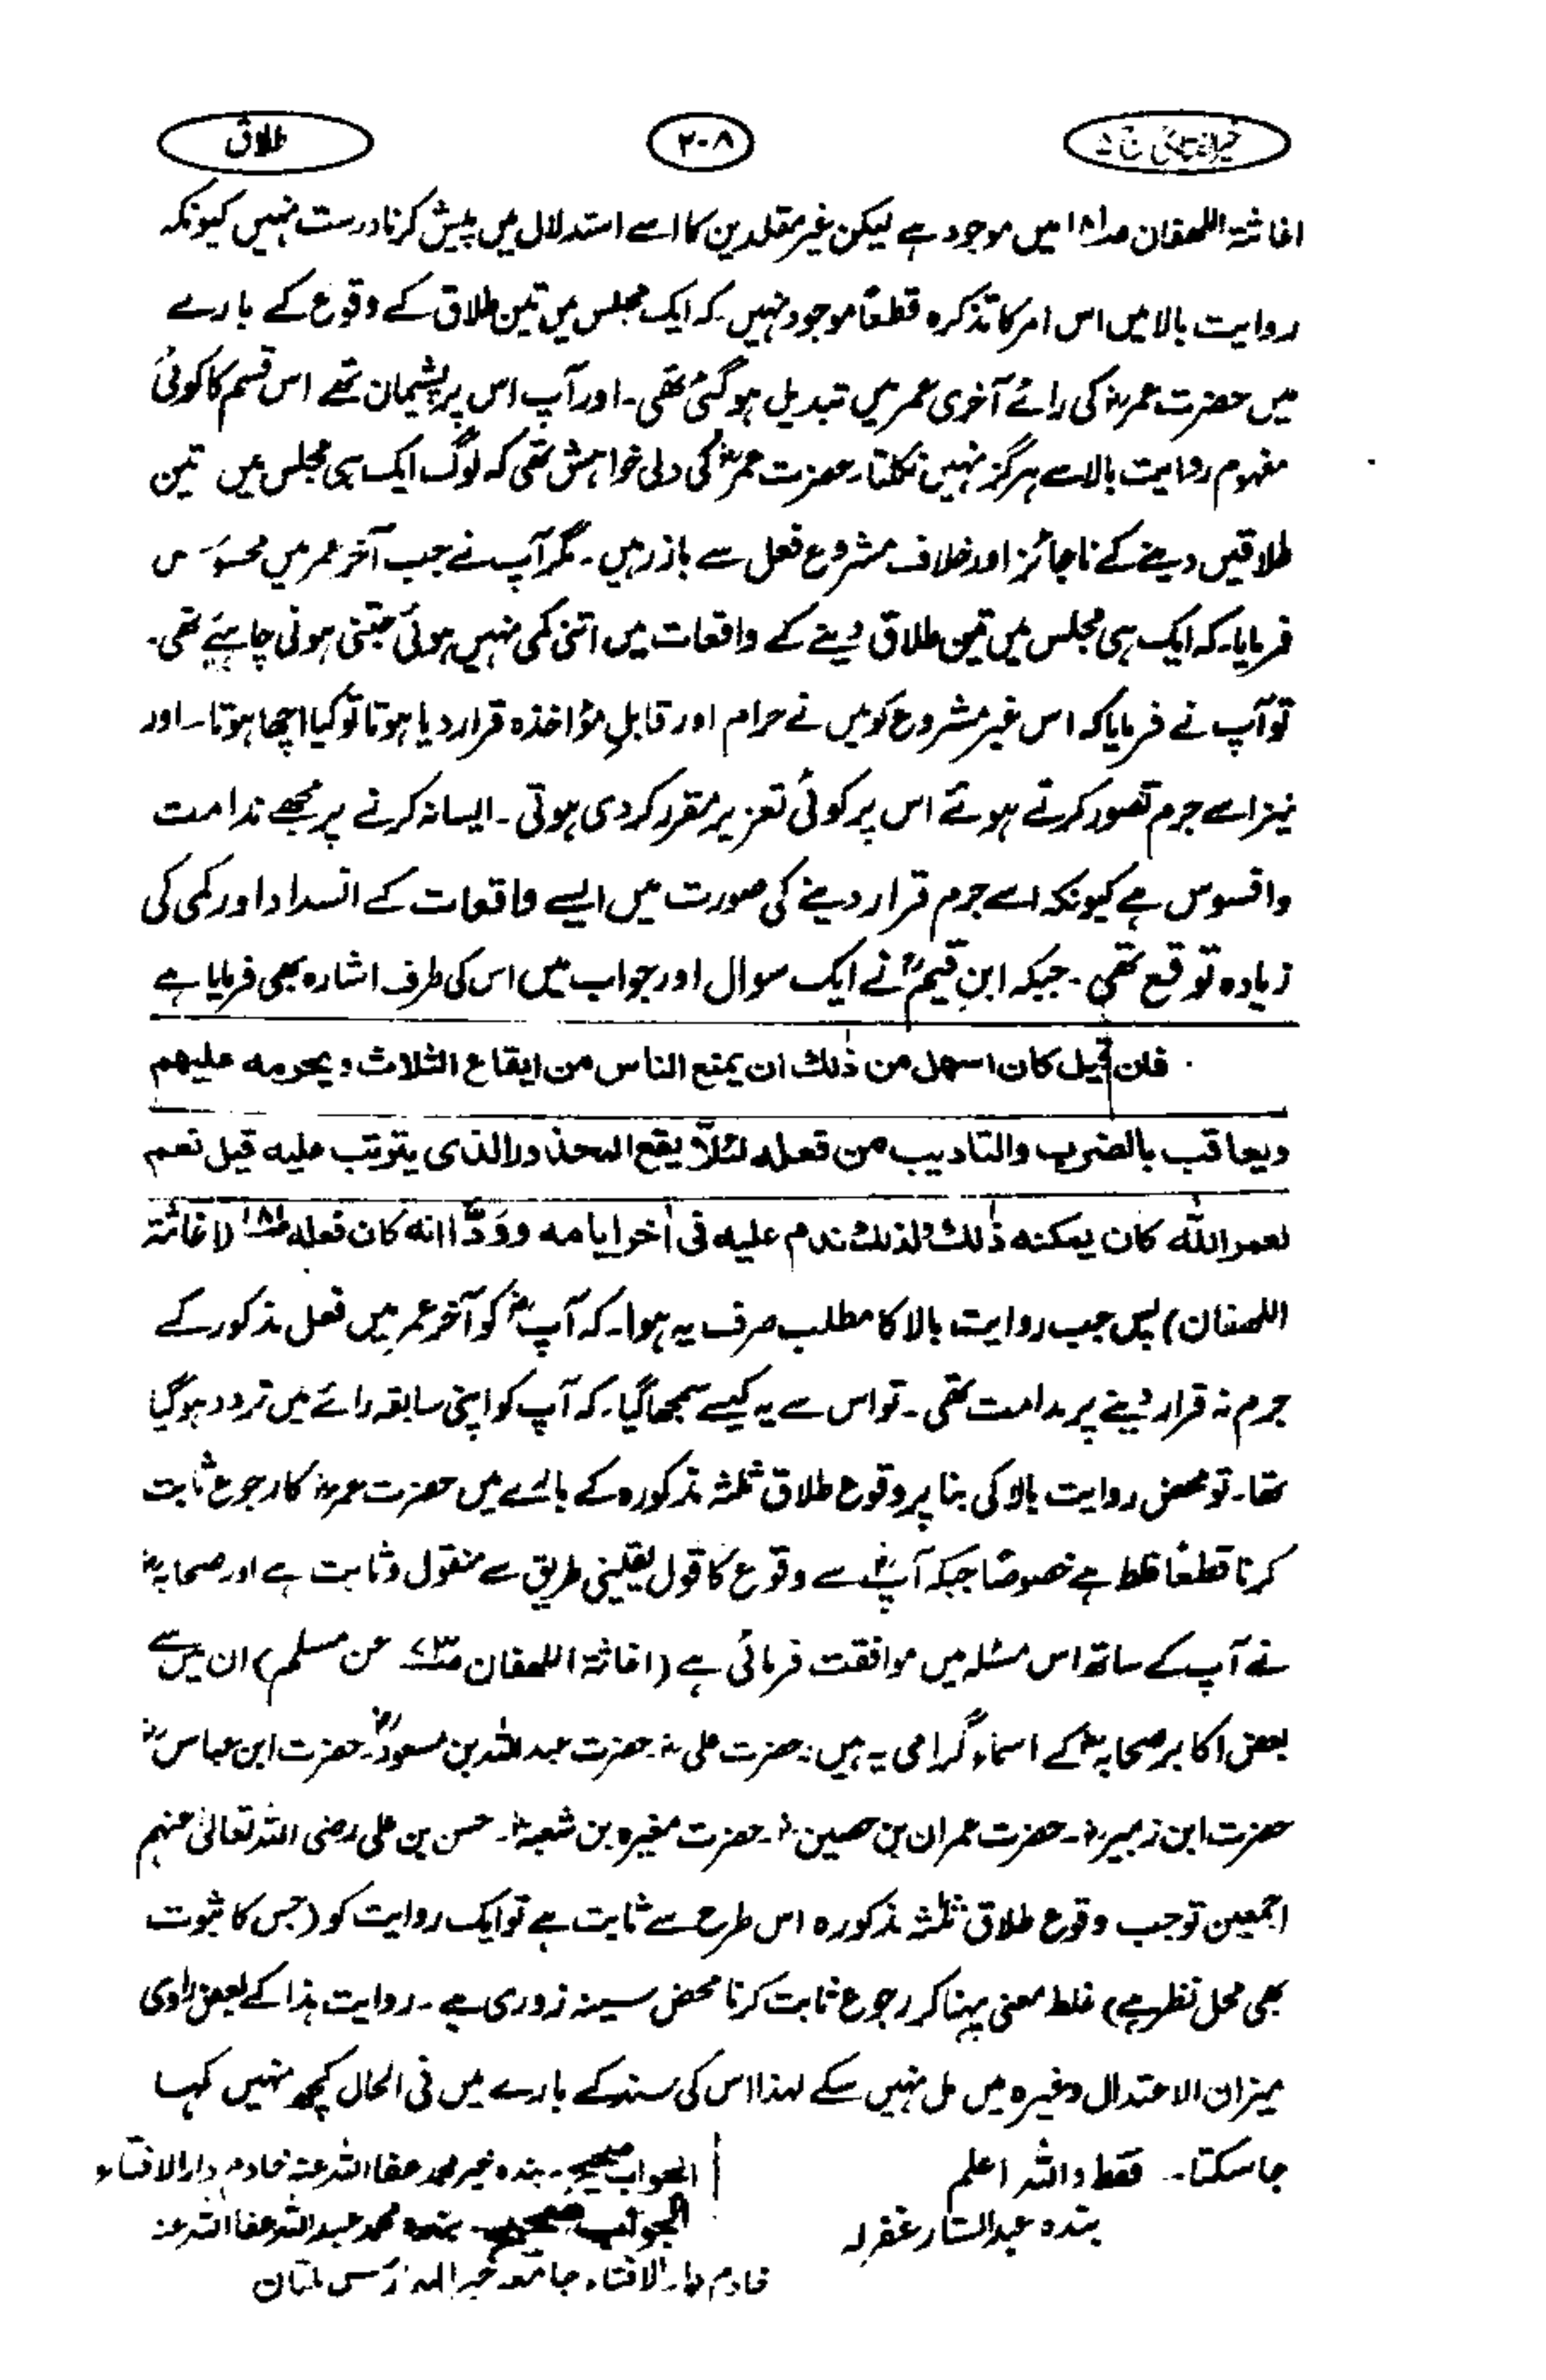 طلاق
۲۰۸
اغاثۃ اللھفان ص۱۸۱ میں موجود ہے لیکن غیر مقلدین کا اسے استدلال میں پیش کرنا درست نہیں کیونکہ
روایت بالا میں اس امر کا تذکرہ قطعاً موجود نہیں کہ ایک مجلس میں تین طلاق کے وقوع کے بارے
میں حضرت عمرؓ کی رائے آخری عمر میں تبدیل ہو گئی تھی۔ اور آپ اس پر پشیمان تھے اس قسم کا کوئی
مفہوم روایت بالا سے ہرگز نہیں نکلتا۔ حضرت عمرؓ کی دلی خواہش تھی کہ لوگ ایک ہی مجلس میں تین
طلاقیں دینے کے ناجائز اور خلاف مشروع فعل سے باز رہیں۔ مگر آپ نے جب آخر عمر میں محسوس
فرمایا۔ کہ ایک ہی مجلس میں تین طلاق دینے کے واقعات میں اتنی کمی نہیں ہوئی جتنی ہونی چاہیئے تھی۔
تو آپ نے فرمایا کہ اس غیر مشروع کو میں نے حرام اور قابلِ مؤاخذہ قرار دیا ہوتا تو کیا اچھا ہوتا۔ اور
نیز اسے جرم تصور کرتے ہوئے اس پر کوئی تعزیر مقرر کر دی ہوتی۔ ایسا نہ کرنے پر مجھے ندامت
وافسوس ہے کیونکہ اسے جرم قرار دینے کی صورت میں ایسے واقعات کے انسداد اور کمی کی
زیادہ توقع تھی۔ جبکہ ابنِ قیمؒ نے ایک سوال اور جواب میں اس کی طرف اشارہ بھی فرمایا ہے
فان قیل کان اسھل من ذٰلک ان یمنع الناس من ایقاع الثلاث ویحرمہ علیھم
ویعاقب بالضرب والتادیب من فعلہ لئلّا یقع المحذور الذی یترتب علیہ قیل نعم
لعمر اللہ کان یمکنہ ذٰلک ولذلک ندم علیہ فی اٰخر ایامہ وودّ انہ کان فعلہ ص۱۸۱ (اغاثۃ
اللھفان) پس جب روایت بالا کا مطلب صرف یہ ہوا۔ کہ آپؓ کو آخر عمر میں فعل مذکور کے
جرم نہ قرار دینے پر ندامت تھی۔ تو اس سے یہ کیسے سمجھا گیا۔ کہ آپ کو اپنی سابقہ رائے میں تردد ہو گیا
تھا۔ تو محض روایت بالا کی بنا پر وقوع طلاق ثلثہ مذکورہ کے بارے میں حضرت عمرؓ کا رجوع ثابت
کرنا قطعاً غلط ہے خصوصاً جبکہ آپؓ سے وقوع کا قول یقینی طریق سے منقول وثابت ہے اور صحابہؓ
نے آپ کے ساتھ اس مسئلہ میں موافقت فرمائی ہے (اغاثۃ اللھفان عن مسلم) ان میں سے
بعض اکابر صحابہؓ کے اسماء گرامی یہ ہیں: حضرت علیؓ۔ حضرت عبداللہ بن مسعودؓ۔ حضرت ابن عباسؓ
حضرت ابن زبیرؓ۔ حضرت عمران بن حصینؓ۔ حضرت مغیرہ بن شعبہؓ۔ حسن بن علی رضی اللہ تعالیٰ عنہم
اجمعین تو جب وقوع طلاق ثلثہ مذکورہ اس طرح سے ثابت ہے تو ایک روایت کو (جس کا ثبوت
بھی محل نظر ہے) غلط معنی پہنا کر رجوع ثابت کرنا محض سینہ زوری ہے۔ روایت ہذا کے بعض راوی
میزان الاعتدال وغیرہ میں مل نہیں سکے لہذا اس کی سند کے بارے میں فی الحال کچھ نہیں کہا
جا سکتا۔ فقط واللہ اعلم
بندہ عبدالستار غفرلہ
الجواب صحیح۔ بندہ خیر محمد عفا اللہ عنہ خادم دارالافتاء
الجواب صحیح۔ بندہ محمد عبداللہ عفا اللہ عنہ
خادم دارالافتاء جامعہ خیر المدارس ملتان